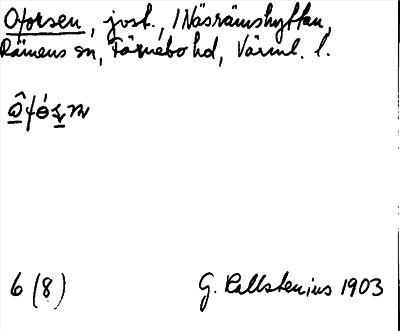 Oforsen, jost., /Näsrämshyttan,
Rämens sn, Färnebo hd, Värml. l.
6 (8) G. Kallstenius 1903